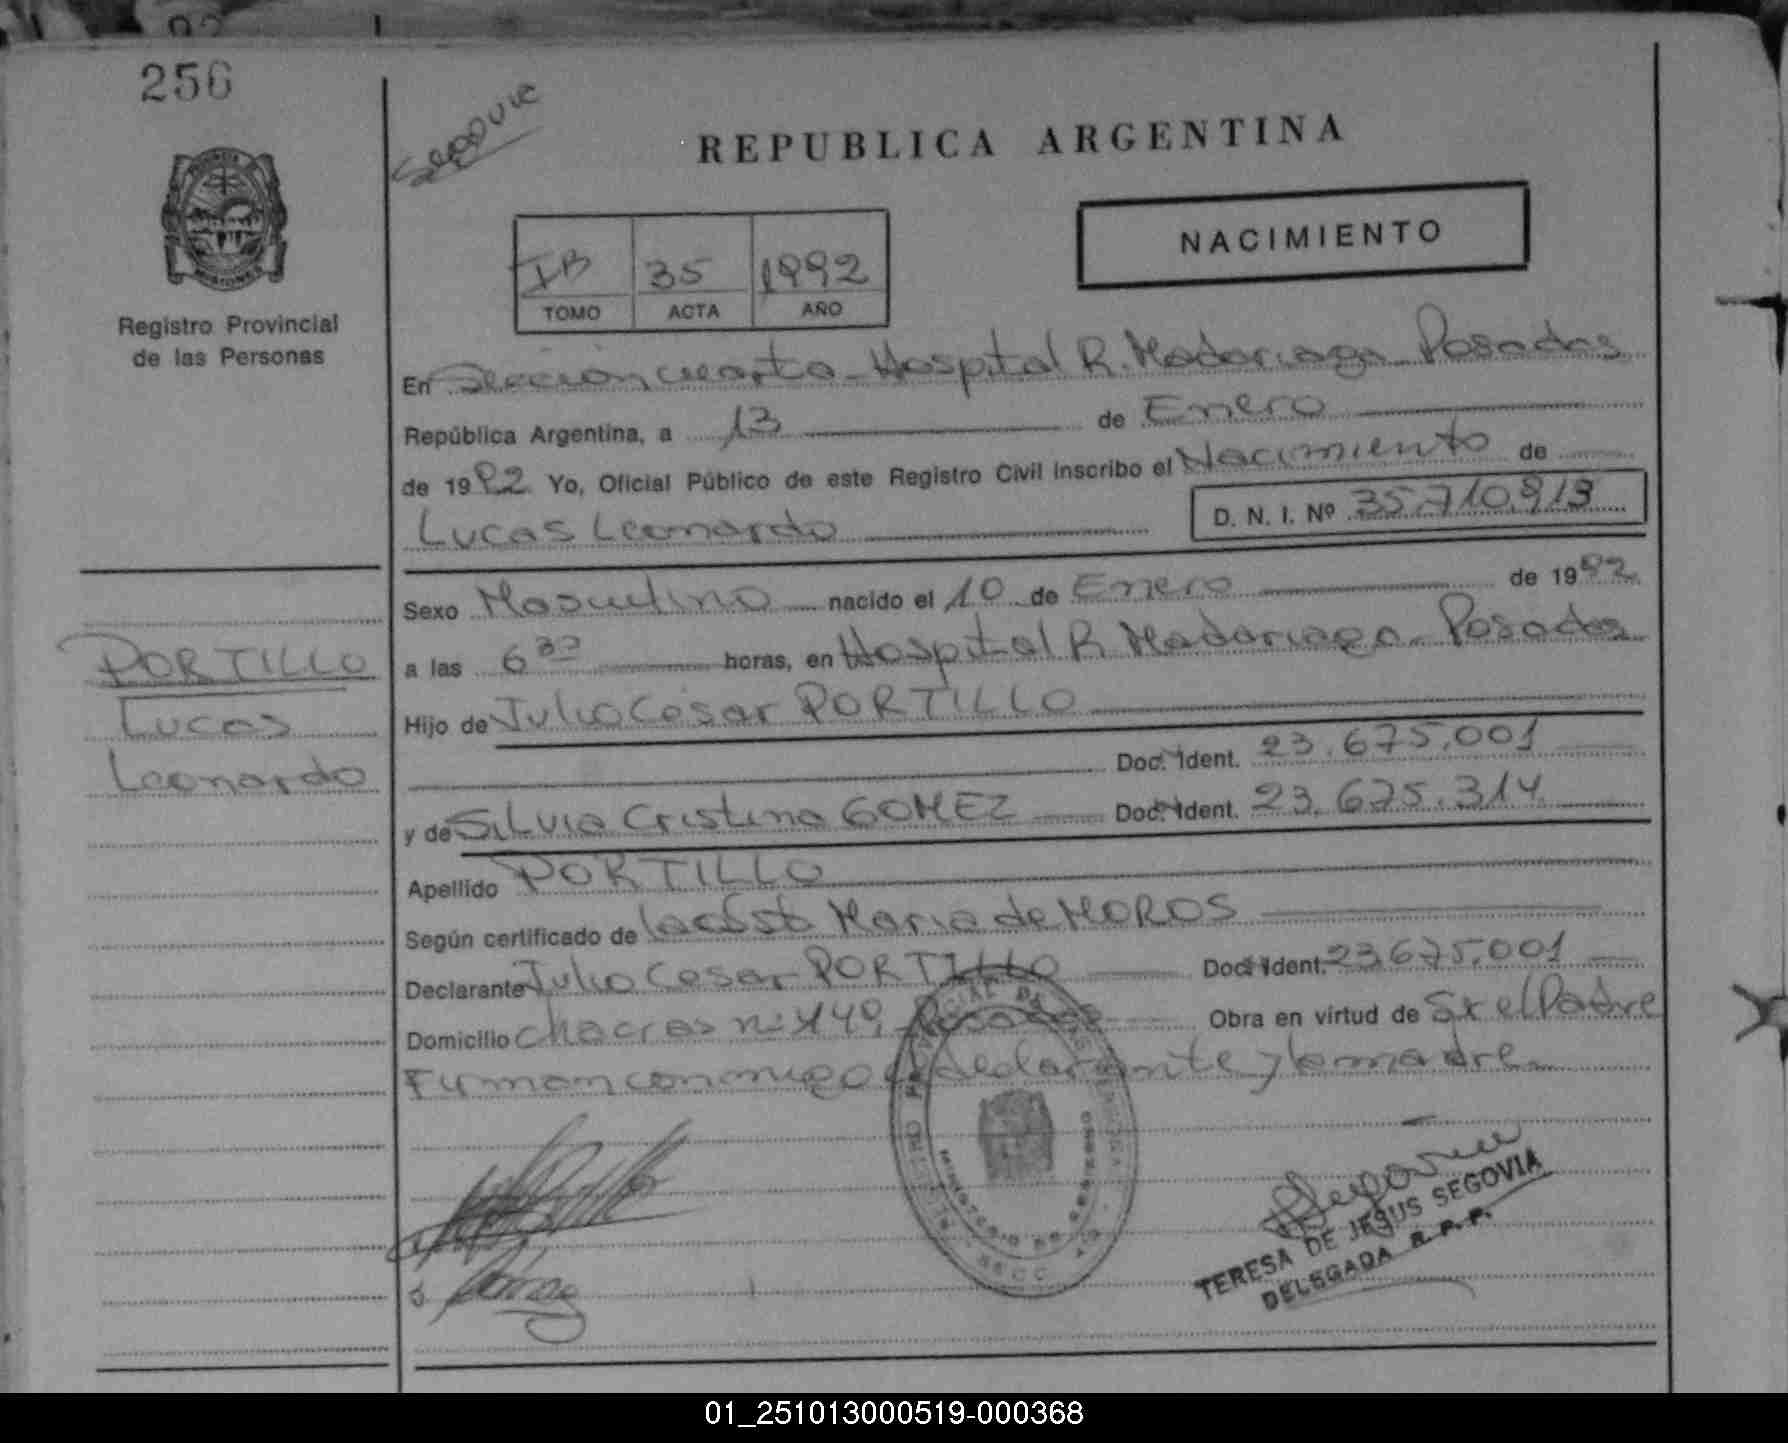 256
Segovie
REPUBLICA ARGENTINA
NACIMIENTO
IB 35 1992
TOMO ACTA AÑO
Registro Provincial
de las Personas
En Sección cuarta - Hospital R. Madariaga - Posadas
República Argentina, a 13 de Enero
de 1992 Yo, Oficial Público de este Registro Civil inscribo el Nacimiento de
Lucas Leonardo D. N. I. Nº 35.710.913
Sexo Masculino nacido el 10 de Enero de 1992
a las 6 30 horas, en Hospital R. Madariaga - Posadas
Hijo de Julio Cesar PORTILLO
Doc. Ident. 23.675.001
y de Silvia Cristina GOMEZ Doc. Ident. 23.675.314
Apellido PORTILLO
Según certificado de Maria de MOROS
Declarante Julio Cesar PORTILLO Doc. Ident. 23.675.001
Domicilio Chacras nº 149, Posadas Obra en virtud de Sr el Padre
Firman conmigo el declarante y la madre
PORTILLO
Lucas
Leonardo
Segovia
TERESA DE JESUS SEGOVIA
DELEGADA R. P. P.
01_251013000519-000368